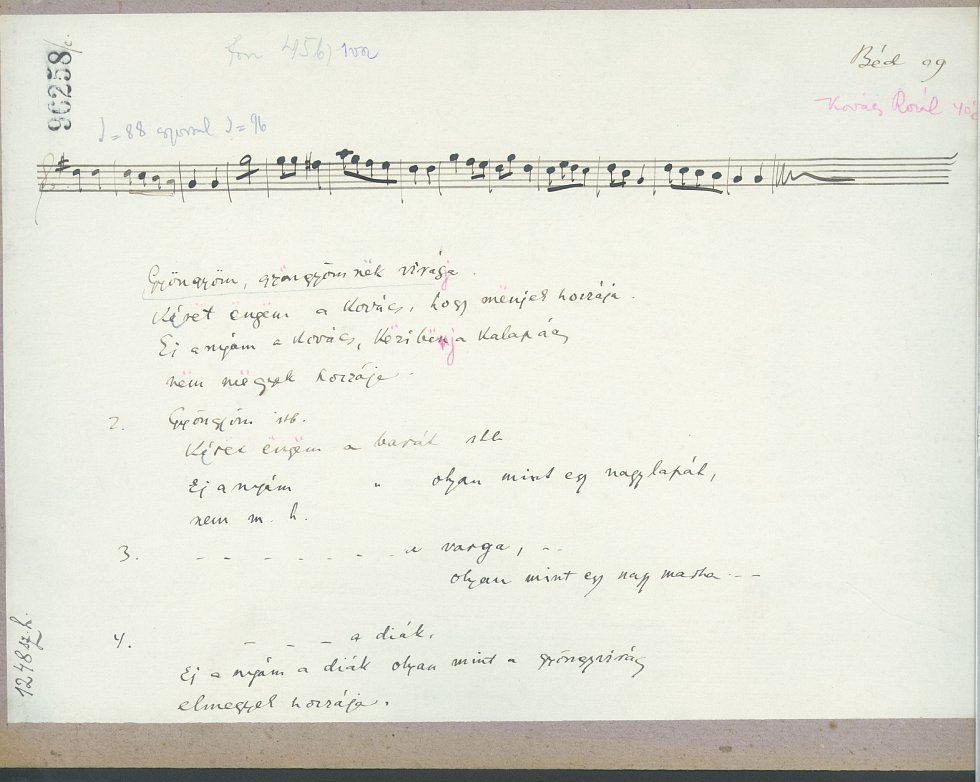 96258/c.
Béd 99
Kovács Rozál
♩=88 ♩=96
Gyöngyöm, gyöngyömnek virágja.
Kéret ëngëm a kovács, hogy mënjek hozzája.
Ej anyám a kovács, Këzibënja kalapács
nëm mëgyek hozzája.
2. Gyöngyöm stb.
Kéret ëngëm a barát stb
Ej anyám " olyan mint egy nagy lapát,
nem m. h.
3. - - - - - - - a varga, --
olyan mint egy nagy marha ---
4. - - - a diák.
Ej anyám a diák olyan mint a gyöngyvirág
elmegyek hozzája.
1248